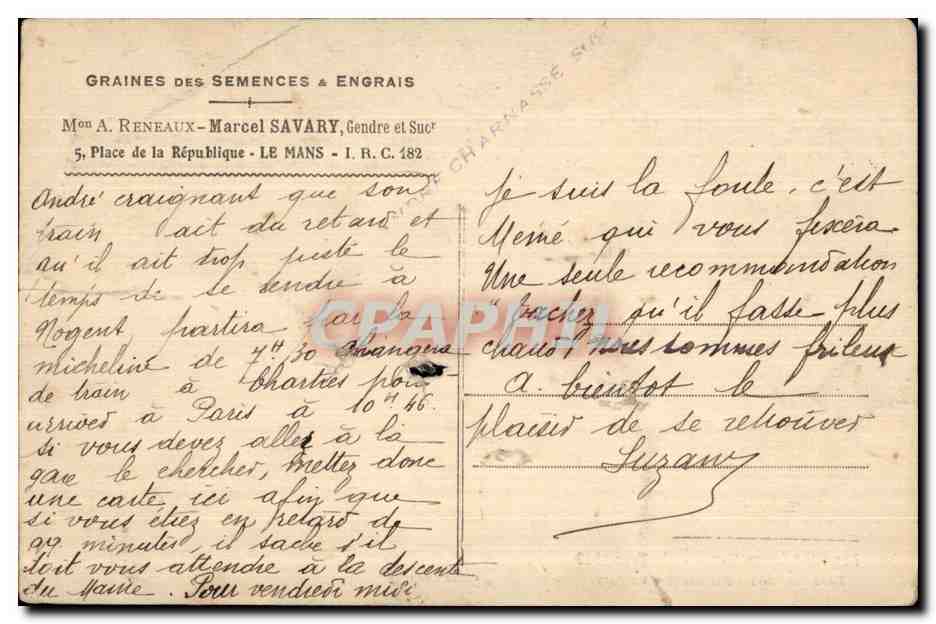 GRAINES DES SEMENCES & ENGRAIS
Mon A. RENEAUX - Marcel SAVARY, Gendre et Sucr
5, Place de la République - LE MANS - I. R. C. 182
André craignant que son
train ait du retard et
qu'il ait trop juste le
temps de se rendre à
Nogent, partira par la
micheline de 7H 30 changera
de train à Chartres pour
arrived à Paris à 10H 46.
si vous devez aller à la
gare le chercher, mettez donc
une carte ici afin que
si vous étiez en retard de
qq. minutes, il sache s'il
doit vous attendre à la descente
du Maine. Pour vendredi midi
Je suis la foule, c'est
Memé qui vous fixera
Une seule recommandation
"tachez qu'il fasse plus
chaud", nous sommes frileux
A bientot le
plaisir de se retrouver
Suzanne
CHARNASSÉ
CPAPHIL